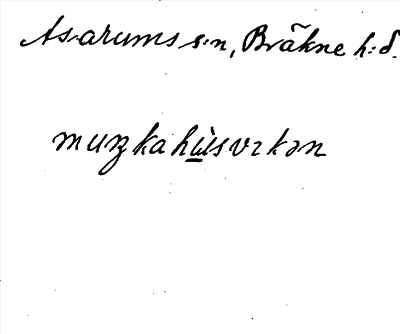 Asarums sn, Bräkne h:d.
muŋkahu̲̇svɪkən